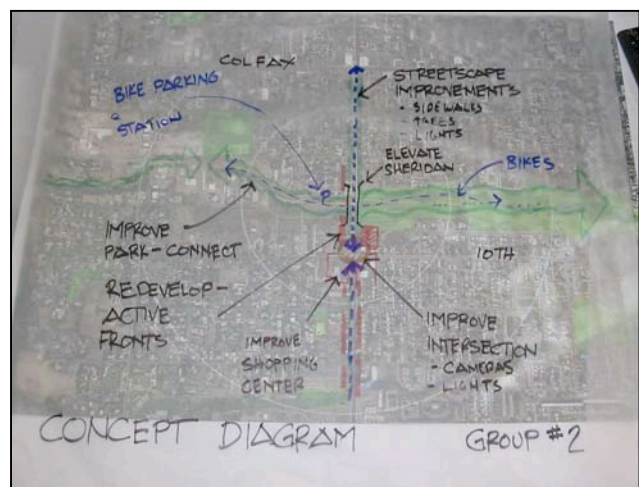 COLFAX
BIKE PARKING
@
STATION
STREETSCAPE
IMPROVEMENTS
• SIDEWALKS
• TREES
- LIGHTS
ELEVATE
SHERIDAN
BIKES
P
IMPROVE
PARK-CONNECT
10TH
REDEVELOP-
ACTIVE
FRONTS
IMPROVE
SHOPPING
CENTER
IMPROVE
INTERSECTION
- CAMERAS
- LIGHTS
CONCEPT DIAGRAM
GROUP #2